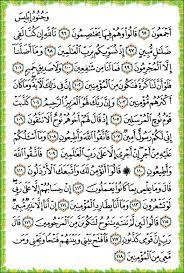 وَجُنُودُ إِبْلِيسَ
أَجْمَعُونَ ٩٥ قَالُوا وَهُمْ فِيهَا يَخْتَصِمُونَ ٩٦ تَاللَّهِ إِن كُنَّا لَفِي
ضَلَالٍ مُّبِينٍ ٩٧ إِذْ نُسَوِّيكُم بِرَبِّ الْعَالَمِينَ ٩٨ وَمَا أَضَلَّنَا
إِلَّا الْمُجْرِمُونَ ٩٩ فَمَا لَنَا مِن شَافِعِينَ ١٠٠ وَلَا صَدِيقٍ حَمِيمٍ ١٠١
فَلَوْ أَنَّ لَنَا كَرَّةً فَنَكُونَ مِنَ الْمُؤْمِنِينَ ١٠٢ إِنَّ فِي ذَٰلِكَ لَآيَةً وَمَا كَانَ
أَكْثَرُهُم مُّؤْمِنِينَ ١٠٣ وَإِنَّ رَبَّكَ لَهُوَ الْعَزِيزُ الرَّحِيمُ ١٠٤ كَذَّبَتْ
قَوْمُ نُوحٍ الْمُرْسَلِينَ ١٠٥ إِذْ قَالَ لَهُمْ أَخُوهُمْ نُوحٌ أَلَا تَتَّقُونَ ١٠٦
إِنِّي لَكُمْ رَسُولٌ أَمِينٌ ١٠٧ فَاتَّقُوا اللَّهَ وَأَطِيعُونِ ١٠٨ وَمَا أَسْأَلُكُمْ
عَلَيْهِ مِنْ أَجْرٍ إِنْ أَجْرِيَ إِلَّا عَلَىٰ رَبِّ الْعَالَمِينَ ١٠٩ فَاتَّقُوا
اللَّهَ وَأَطِيعُونِ ١١٠ قَالُوا أَنُؤْمِنُ لَكَ وَاتَّبَعَكَ الْأَرْذَلُونَ ١١١
قَالَ وَمَا عِلْمِي بِمَا كَانُوا يَعْمَلُونَ ١١٢ إِنْ حِسَابُهُمْ إِلَّا عَلَىٰ رَبِّي
لَوْ تَشْعُرُونَ ١١٣ وَمَا أَنَا بِطَارِدِ الْمُؤْمِنِينَ ١١٤ إِنْ أَنَا إِلَّا نَذِيرٌ مُّبِينٌ ١١٥
قَالُوا لَئِن لَّمْ تَنتَهِ يَا نُوحُ لَتَكُونَنَّ مِنَ الْمَرْجُومِينَ ١١٦ قَالَ
رَبِّ إِنَّ قَوْمِي كَذَّبُونِ ١١٧ فَافْتَحْ بَيْنِي وَبَيْنَهُمْ فَتْحًا وَنَجِّنِي وَمَن
مَّعِيَ مِنَ الْمُؤْمِنِينَ ١١٨